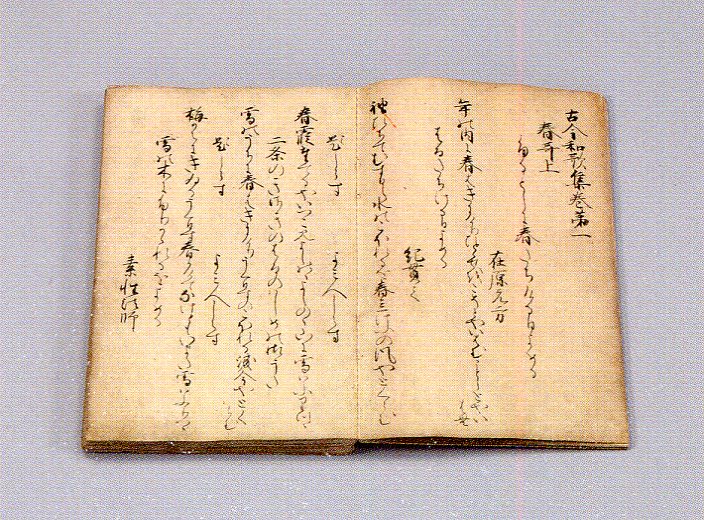 古今和歌集巻第一
春哥上
ふるとしに春たちける日よめる
在原元方
年の内に春はきにけりひとゝせをこそとやいはむことしとやいはむ
はるたちける日よめる
紀貫之
袖ひちてむすひし水のこほれるを春立けふの風やとくらむ
題しらす よみ人しらす
春霞たてるやいつこみよしのゝよしのゝ山に雪はふりつゝ
二条のきさきのはるのはしめの御うた
雪のうちに春はきにけりうくひすのこほれる涙今やとくらむ
題しらす よみ人しらす
梅かえにきゐるうくひす春かけてなけともいまた雪はふりつゝ
雪の木にふりかゝれるをよめる
素性法師